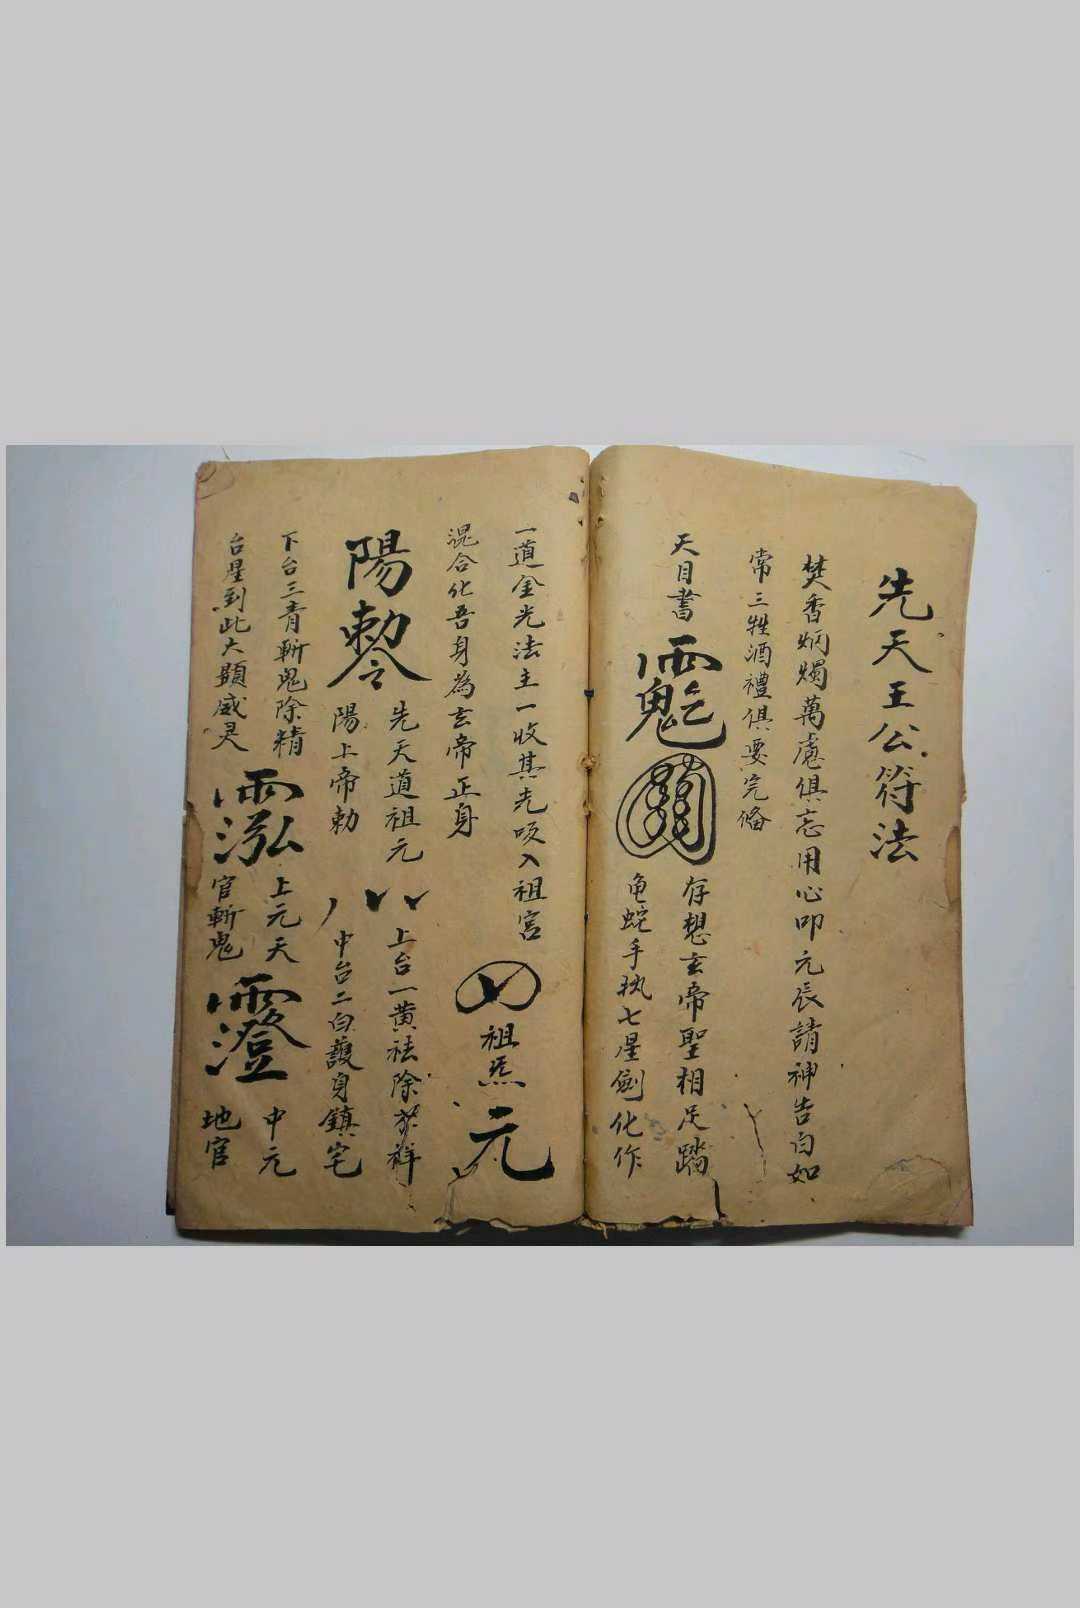 先天王公符法
焚香炳燭萬慮俱忘用心叩元辰請神告白如
常三牲酒禮俱要完俻
天目書
存想玄帝聖相足踏
龟蛇手执七星劍化作
一道金光法主一收其光吸入祖宮
混合化吾身為玄帝正身
祖炁
元
陽勅令
先天道祖元
陽上帝勅
上台一黄祛除不祥
中台二白護身鎮宅
下台三青斬鬼除精
台星到此大顯威灵
上元天
官斬鬼
中元
地官